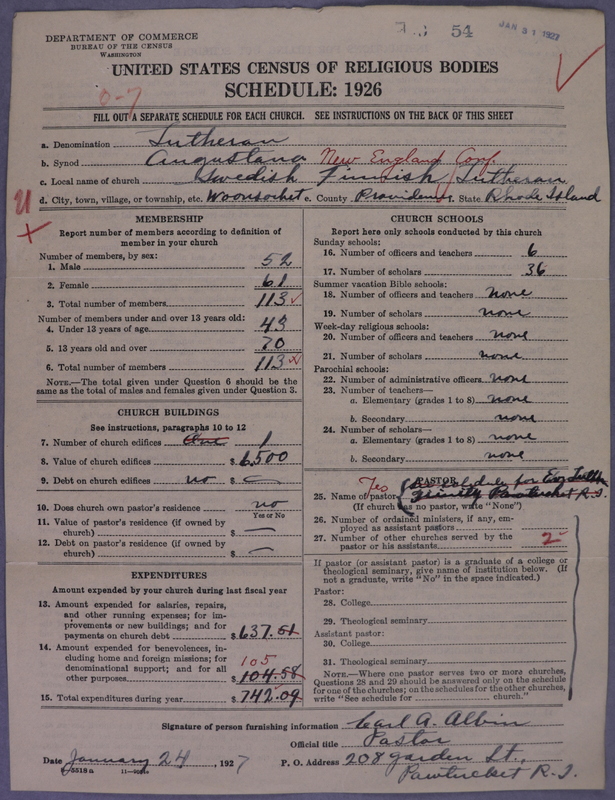 DEPARTMENT OF COMMERCE
BUREAU OF THE CENSUS
WASHINGTON
54
JAN 31 1927
UNITED STATES CENSUS OF RELIGIOUS BODIES
SCHEDULE: 1926
0-7
FILL OUT A SEPARATE SCHEDULE FOR EACH CHURCH. SEE INSTRUCTIONS ON THE BACK OF THIS SHEET
a. Denomination Lutheran
b. Synod Augustana New England Conf.
c. Local name of church Swedish Finnish Lutheran
d. City, town, village, or township, etc. Woonsocket e. County Providence f. State Rhode Island
MEMBERSHIP
Report number of members according to definition of
member in your church
Number of members, by sex:
1. Male 52
2. Female 61
3. Total number of members 113
Number of members under and over 13 years old:
4. Under 13 years of age 43
5. 13 years old and over 70
6. Total number of members 113
NOTE.—The total given under Question 6 should be the
same as the total of males and females given under Question 3.
CHURCH BUILDINGS
See instructions, paragraphs 10 to 12
7. Number of church edifices One 1
8. Value of church edifices $ 6,500
9. Debt on church edifices no $ —
10. Does church own pastor's residence? no
Yes or No
11. Value of pastor's residence (if owned by
church) $ —
12. Debt on pastor's residence (if owned by
church) $ —
EXPENDITURES
Amount expended by your church during last fiscal year
13. Amount expended for salaries, repairs,
and other running expenses; for im-
provements or new buildings; and for
payments on church debt $ 637.51
14. Amount expended for benevolences, in-
cluding home and foreign missions; for
denominational support; and for all
other purposes $ 104.58
105
15. Total expenditures during year $ 742.09
CHURCH SCHOOLS
Report here only schools conducted by this church
Sunday schools:
16. Number of officers and teachers 6
17. Number of scholars 36
Summer vacation Bible schools:
18. Number of officers and teachers none
19. Number of scholars none
Week-day religious schools:
20. Number of officers and teachers none
21. Number of scholars none
Parochial schools:
22. Number of administrative officers none
23. Number of teachers—
a. Elementary (grades 1 to 8) none
b. Secondary none
24. Number of scholars—
a. Elementary (grades 1 to 8) none
b. Secondary none
PASTOR
Yes See schedule for
25. Name of pastor Trinity Pawtucket R.I.
(If church has no pastor, write "None")
26. Number of ordained ministers, if any, em-
ployed as assistant pastors
27. Number of other churches served by the
pastor or his assistants 2
If pastor (or assistant pastor) is a graduate of a college or
theological seminary, give name of institution below. (If
not a graduate, write "No" in the space indicated.)
Pastor:
28. College
29. Theological seminary
Assistant pastor:
30. College
31. Theological seminary
NOTE.—Where one pastor serves two or more churches,
Questions 28 and 29 should be answered only on the schedule
for one of the churches; on the schedules for the other churches,
write "See schedule for church."
Signature of person furnishing information Carl A. Albin
Official title Pastor
Date January 24, 1927 P. O. Address 208 Garden St.,
Pawtucket R.I.